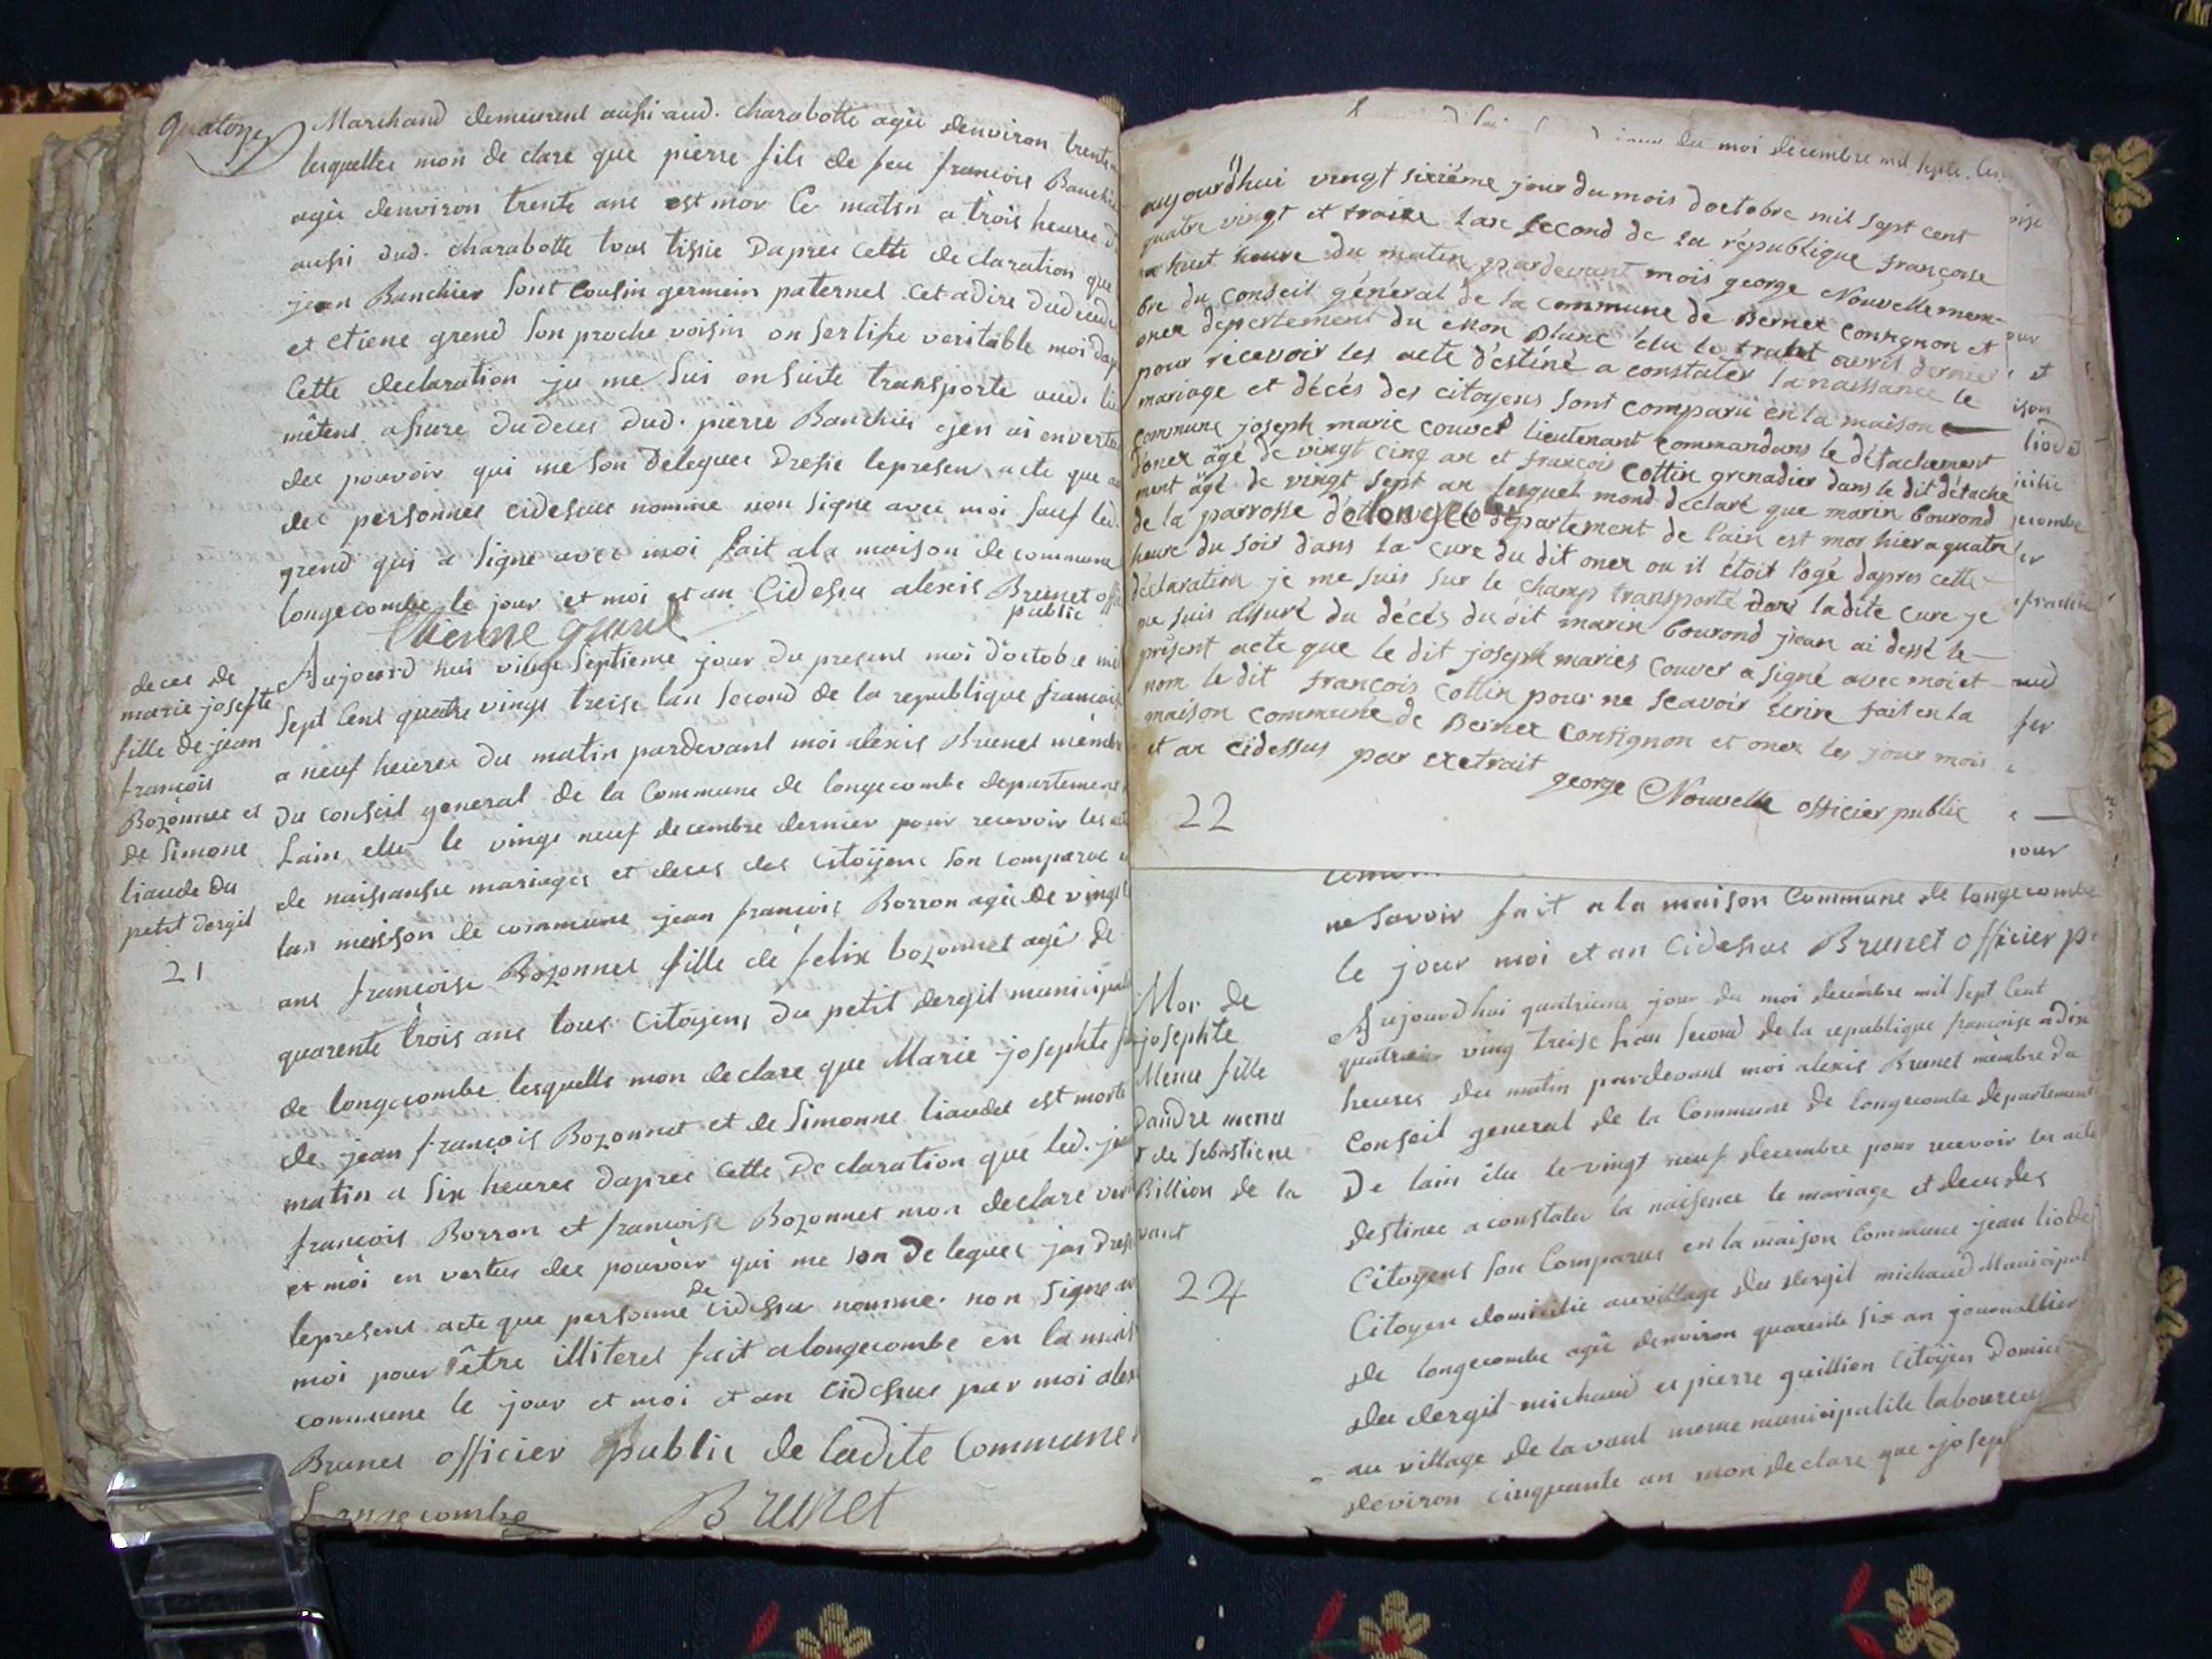 quatorze
Marchand demeurent aussi aud. charabotte agée denviron trente
lesquelles mon de clare que pierre fils de feu francois Banchie
agée denviron trente ans est mor Ce matin a trois heures d
aussi dud. charabotte tous tissie Dapres Cette declaration que
jean Banchier sont Cousin germein paternel Cet adire dud
et etiene grend son proche voisin on sertifie veritable moi dap
Cette declaration je me suis ensuite transporte aud. lie
mêtens assure du deces dud. pierre Banchier jen ai en vertu
des pouvoir qui me son Delegues Dresse lepresen acte que
des personnes cidessus nomme non signe avec moi sauf led.
grend qui a signe avec moi fait ala maison de commune
longecombe le jour et moi et an Cidessu alexis Brunet offi
public
Etienne grend
deces de
marie josephte
fille de jean
françois
Bozonnet et
de Simone
liaude du
petit dergit
21
Aujourd hui vingt Septieme jour du present moi d'octobre mil
Sept Cent quatre vingt treise lan Second de la republique francois
a neuf heures du matin pardevant moi alexis Brunet membr
du conseil general de la Commune de longecombe departement
Lain elu le vingt neuf decembre dernier pour recevoir les
de naissansse mariages et deces des Citoÿens son comparue
las meison de commune jean françois Borron agée de vingt
ans françoise Bozonnet fille de felix bozonnet agê de
quarente trois ans tous Citoyens du petit dergit municipal
de longecombe lesquells mon declare que Marie josephte
de jean françois Bozonnet et de Simonne liaudet est morte
matin a six heures dapres Cette De claration que led. jea
francois Borron et francoise Bozonnet mon declare ver
et moi en vertus des pouvoir qui me son De legues jai dres
lepresent acte que personne de cidessu nomme non signe av
moi pour être illiteres fait a longecombe en la mais
commune le jour et moi et an cidessus par moi alex
Brunet officier public de ladite Commune
Longecombe Brunet
jour du moi decembre mil septe. Cen
aujourd'hui vingt sixiéme jour du mois doctobre mil sept cent
quatre vingt et traixe lan second de la république françoise
a huit heure du matin pardevant mois george Nouvelle mem-
bre du conseil général de la commune de Bernex Confignon et
onex département du mon blanc elu le avril dernier
pour récevoir les acte déstiné a constater la naissance le
mariage et décès des citoyens sont comparu en la maison
commune joseph marie couvet lieutenant commandans le détachement
donex âgé de vingt cinq an et françois Cottin grenadier dans le dit détache
ment âgé de vingt sept an lesquel mond déclaré que marin bourond
de la parrosse délongeco département de l'ain est mor hier a quatre
heure du soir dans la cure du dit onex ou il étoit logé dapres cette
déclaration je me suis sur le champ transporté dans ladite cure je
me suis assuré du décés du dit marin bourond jean ai dessé le
présent acte que le dit joseph maries couvet a signé avec moi et
nom le dit françois Cottin pour ne scavoir écrire fait en la
maison commune de Bernex Confignon et onex les jour mois
et an cidessus par extrait
george Nouvelle officier public
22
ne savoir fait a la maison Commune de longecombe
le jour moi et an Cidessus Brunet officier p
Mor de
josephte
Menu fille
dandre menu
& de Sebastiene
Billion de la
vant
24
Aujourdhui quatrieme jour du moi decembre mil sept Cent
quatre ving treise lan second de la republique francoise a dix
heures du matin pardevant moi alexis Brunet membre du
Conseil general de la Commune de longecombe departement
De lain elu le vingt neuf decembre pour recevoir les acte
destinee a constater la naissence le mariage et deces des
Citoyens son Comparus en la maison Commune jean liodet
Citoyen domicilie au village du dergit michaud Municipal
de longecombe agée denviron quarente six an journallier
du dergit michaud et pierre guillion Citoÿen domici
au village de la vant meme municipalite laboureur
deviron cinquante an mon declare que josep